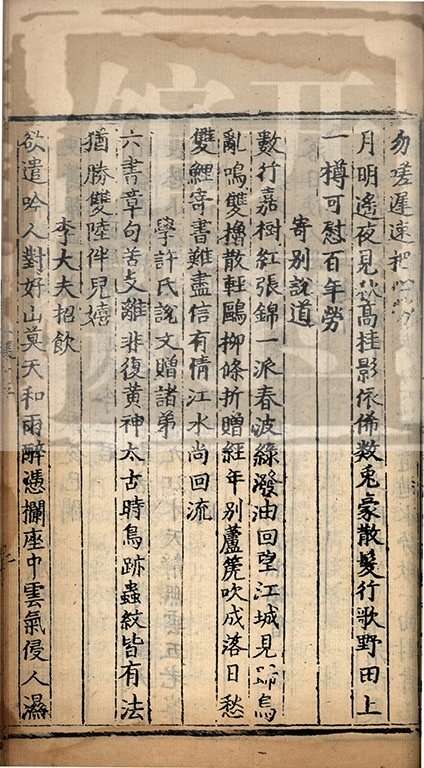 勿嗟遲速把
月明遙夜見秋高挂影依俙数兎豪散髮行歌野田上
一樽可慰百年勞
寄別說道
數行嘉樹紅張錦一派春波綠潑油回望江城見歸烏
亂鳴雙櫓散輕鷗柳條折贈經年別蘆筦吹成落日愁
雙鯉寄書難盡信有情江水尚回流
學許氏說文贈諸弟
六書章句苦支離非復黄神太古時鳥跡蟲紋皆有法
猶勝雙陸伴兒嬉
李大夫招飲
欲遣吟人對好山莫天和雨醉憑攔座中雲氣侵人濕